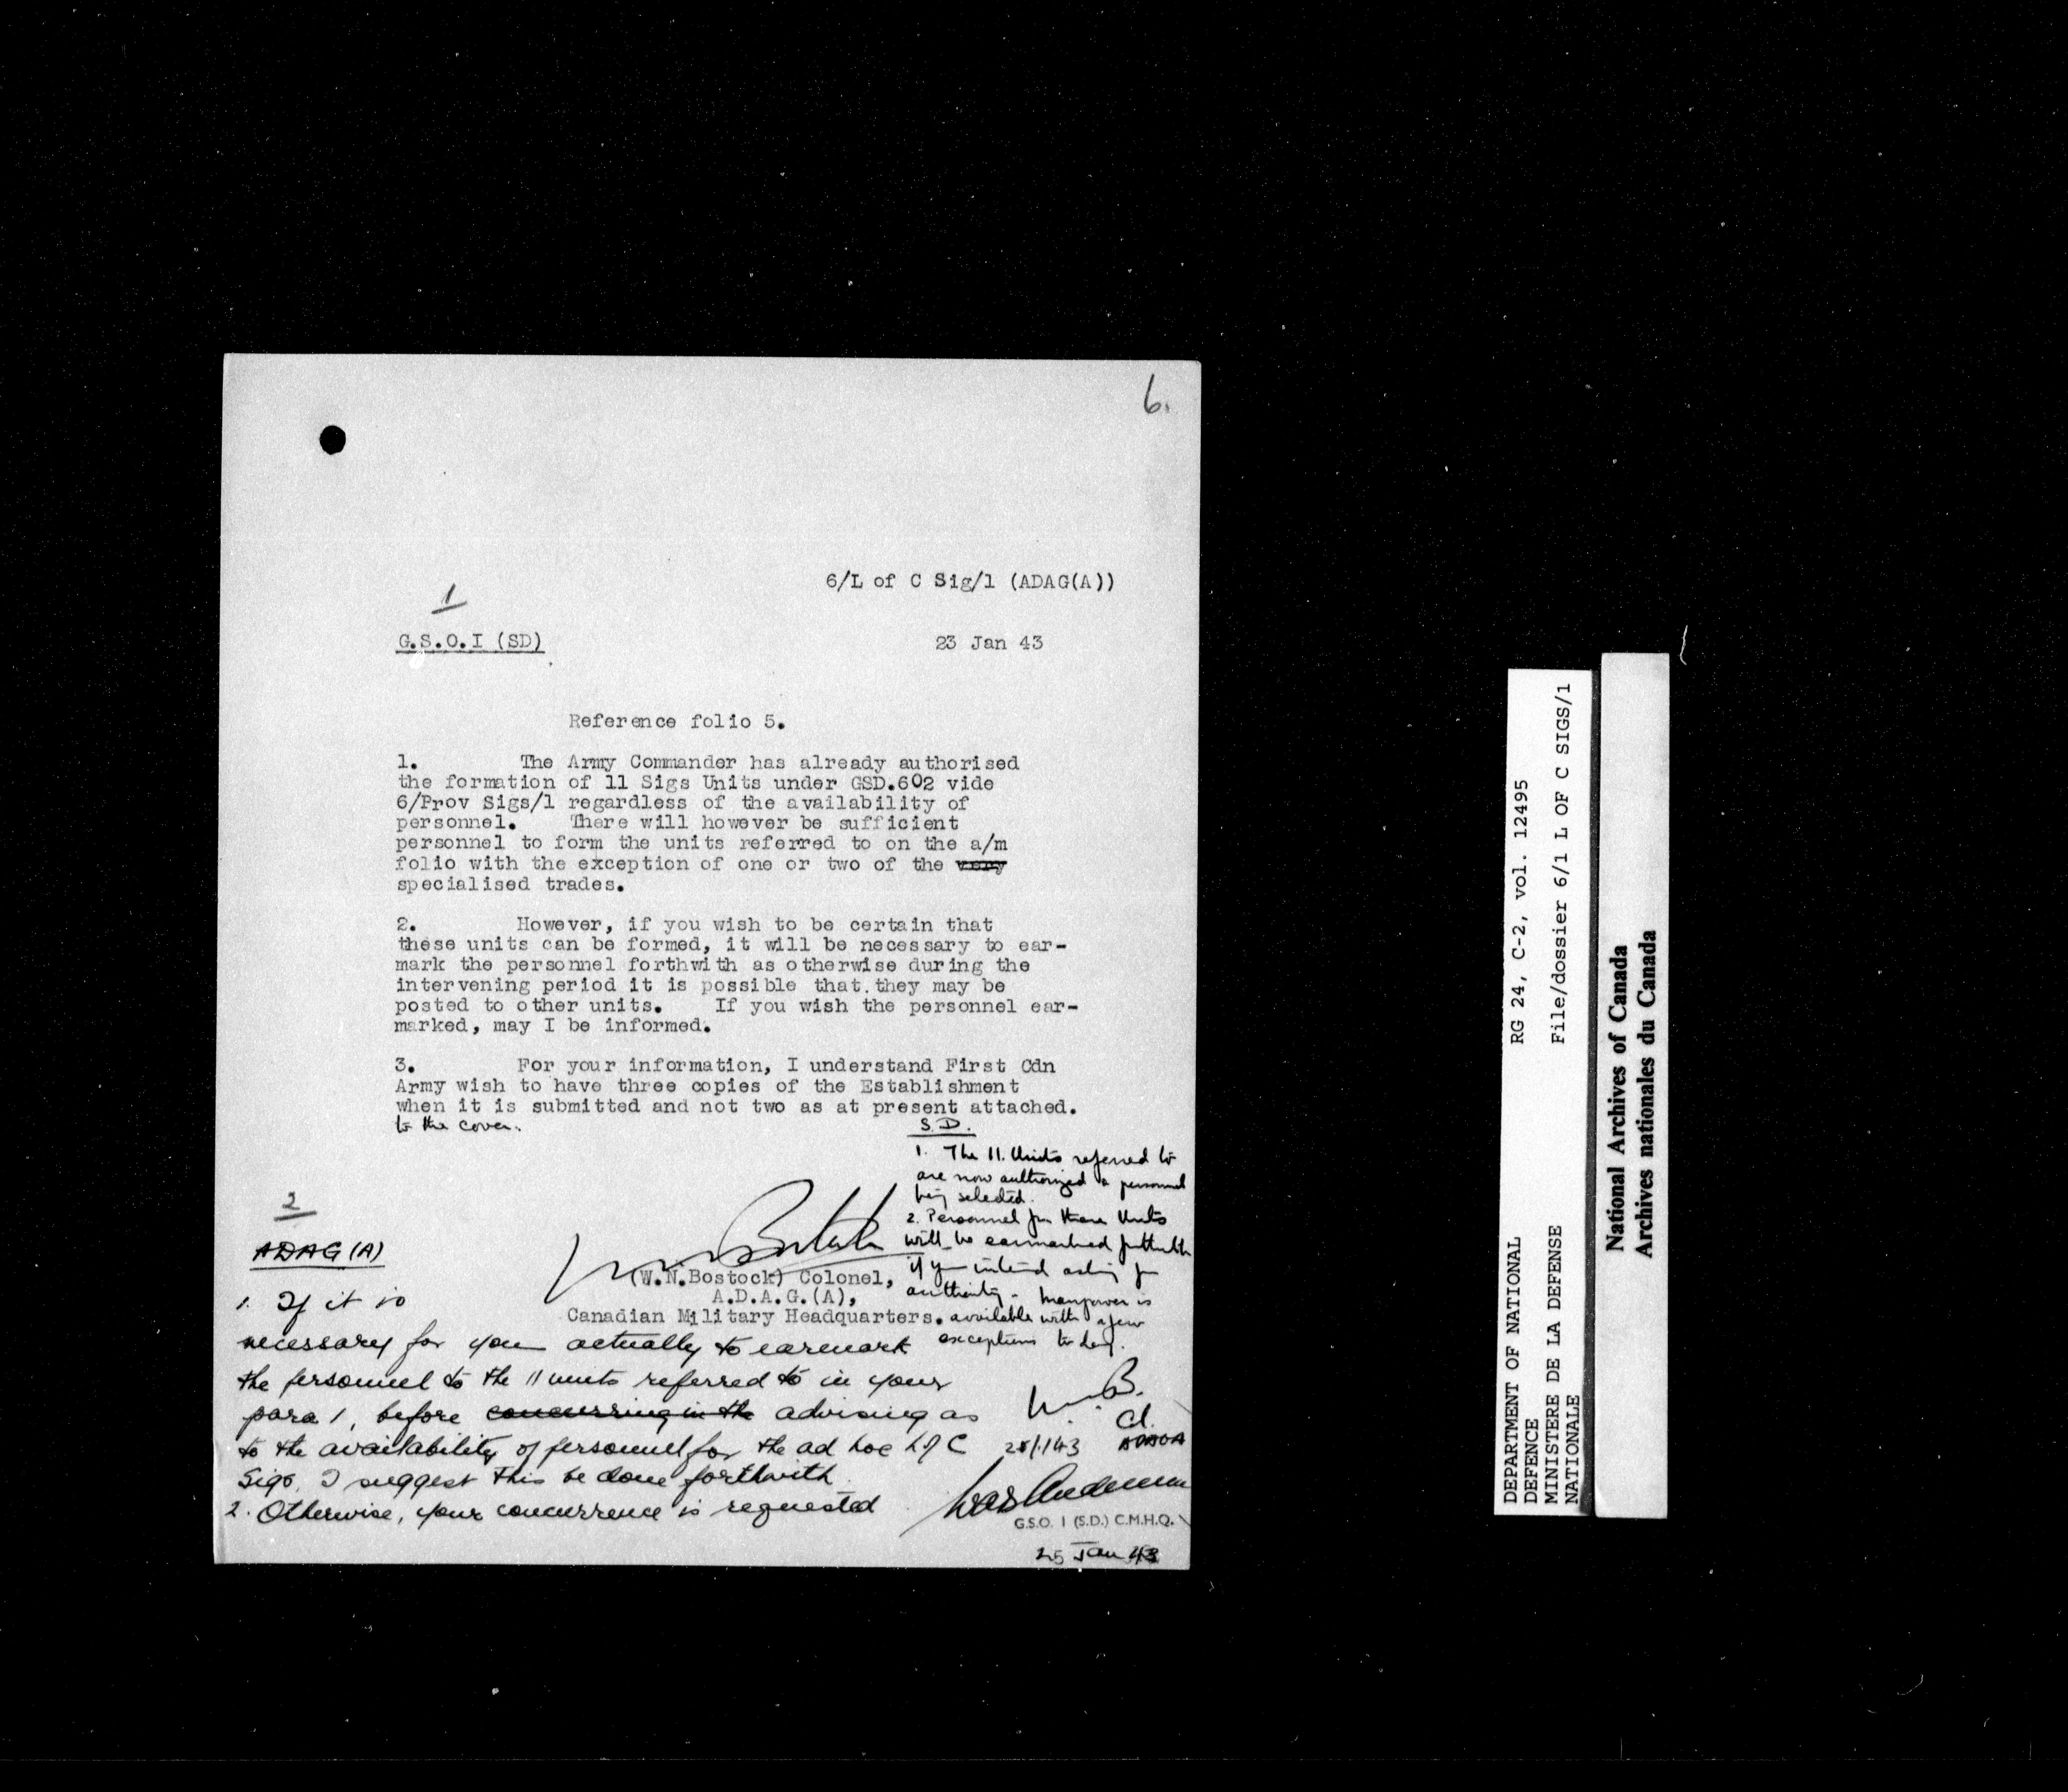 6.
6/L of C Sig/1 (ADAG(A))
1
G.S.O.I (SD)
23 Jan 43
Reference folio 5.
1. The Army Commander has already authorised
the formation of 11 Sigs Units under GSD.602 vide
6/Prov Sigs/1 regardless of the availability of
personnel. There will however be sufficient
personnel to form the units referred to on the a/m
folio with the exception of one or two of the very
specialised trades.
2. However, if you wish to be certain that
these units can be formed, it will be necessary to ear-
mark the personnel forthwith as otherwise during the
intervening period it is possible that they may be
posted to other units. If you wish the personnel ear-
marked, may I be informed.
3. For your information, I understand First Cdn
Army wish to have three copies of the Establishment
when it is submitted and not two as at present attached.
to the cover.
(W.N.Bostock) Colonel,
A.D.A.G.(A),
Canadian Military Headquarters.
2
ADAG (A)
1. If it is
necessary for you actually to earmark
the personnel to the 11 units referred to in your
para 1, before concurring in the advising as
to the availability of personnel for the ad hoc L of C
Sigs, I suggest this be done forthwith.
2. Otherwise, your concurrence is requested
G.S.O. 1 (S.D.) C.M.H.Q.
25 Jan 43
S.D.
1. The 11 Units referred to
are now authorized & personnel
being selected.
2. Personnel for these Units
will be earmarked forthwith
if you intend asking for
authority. Manpower is
available with a few
exceptions
W.B.
Cl.
ADAGA
DEPARTMENT OF NATIONAL RG 24, C-2, vol. 12495
DEFENCE
MINISTERE DE LA DEFENSE File/dossier 6/1 L OF C SIGS/1
NATIONALE
National Archives of Canada
Archives nationales du Canada